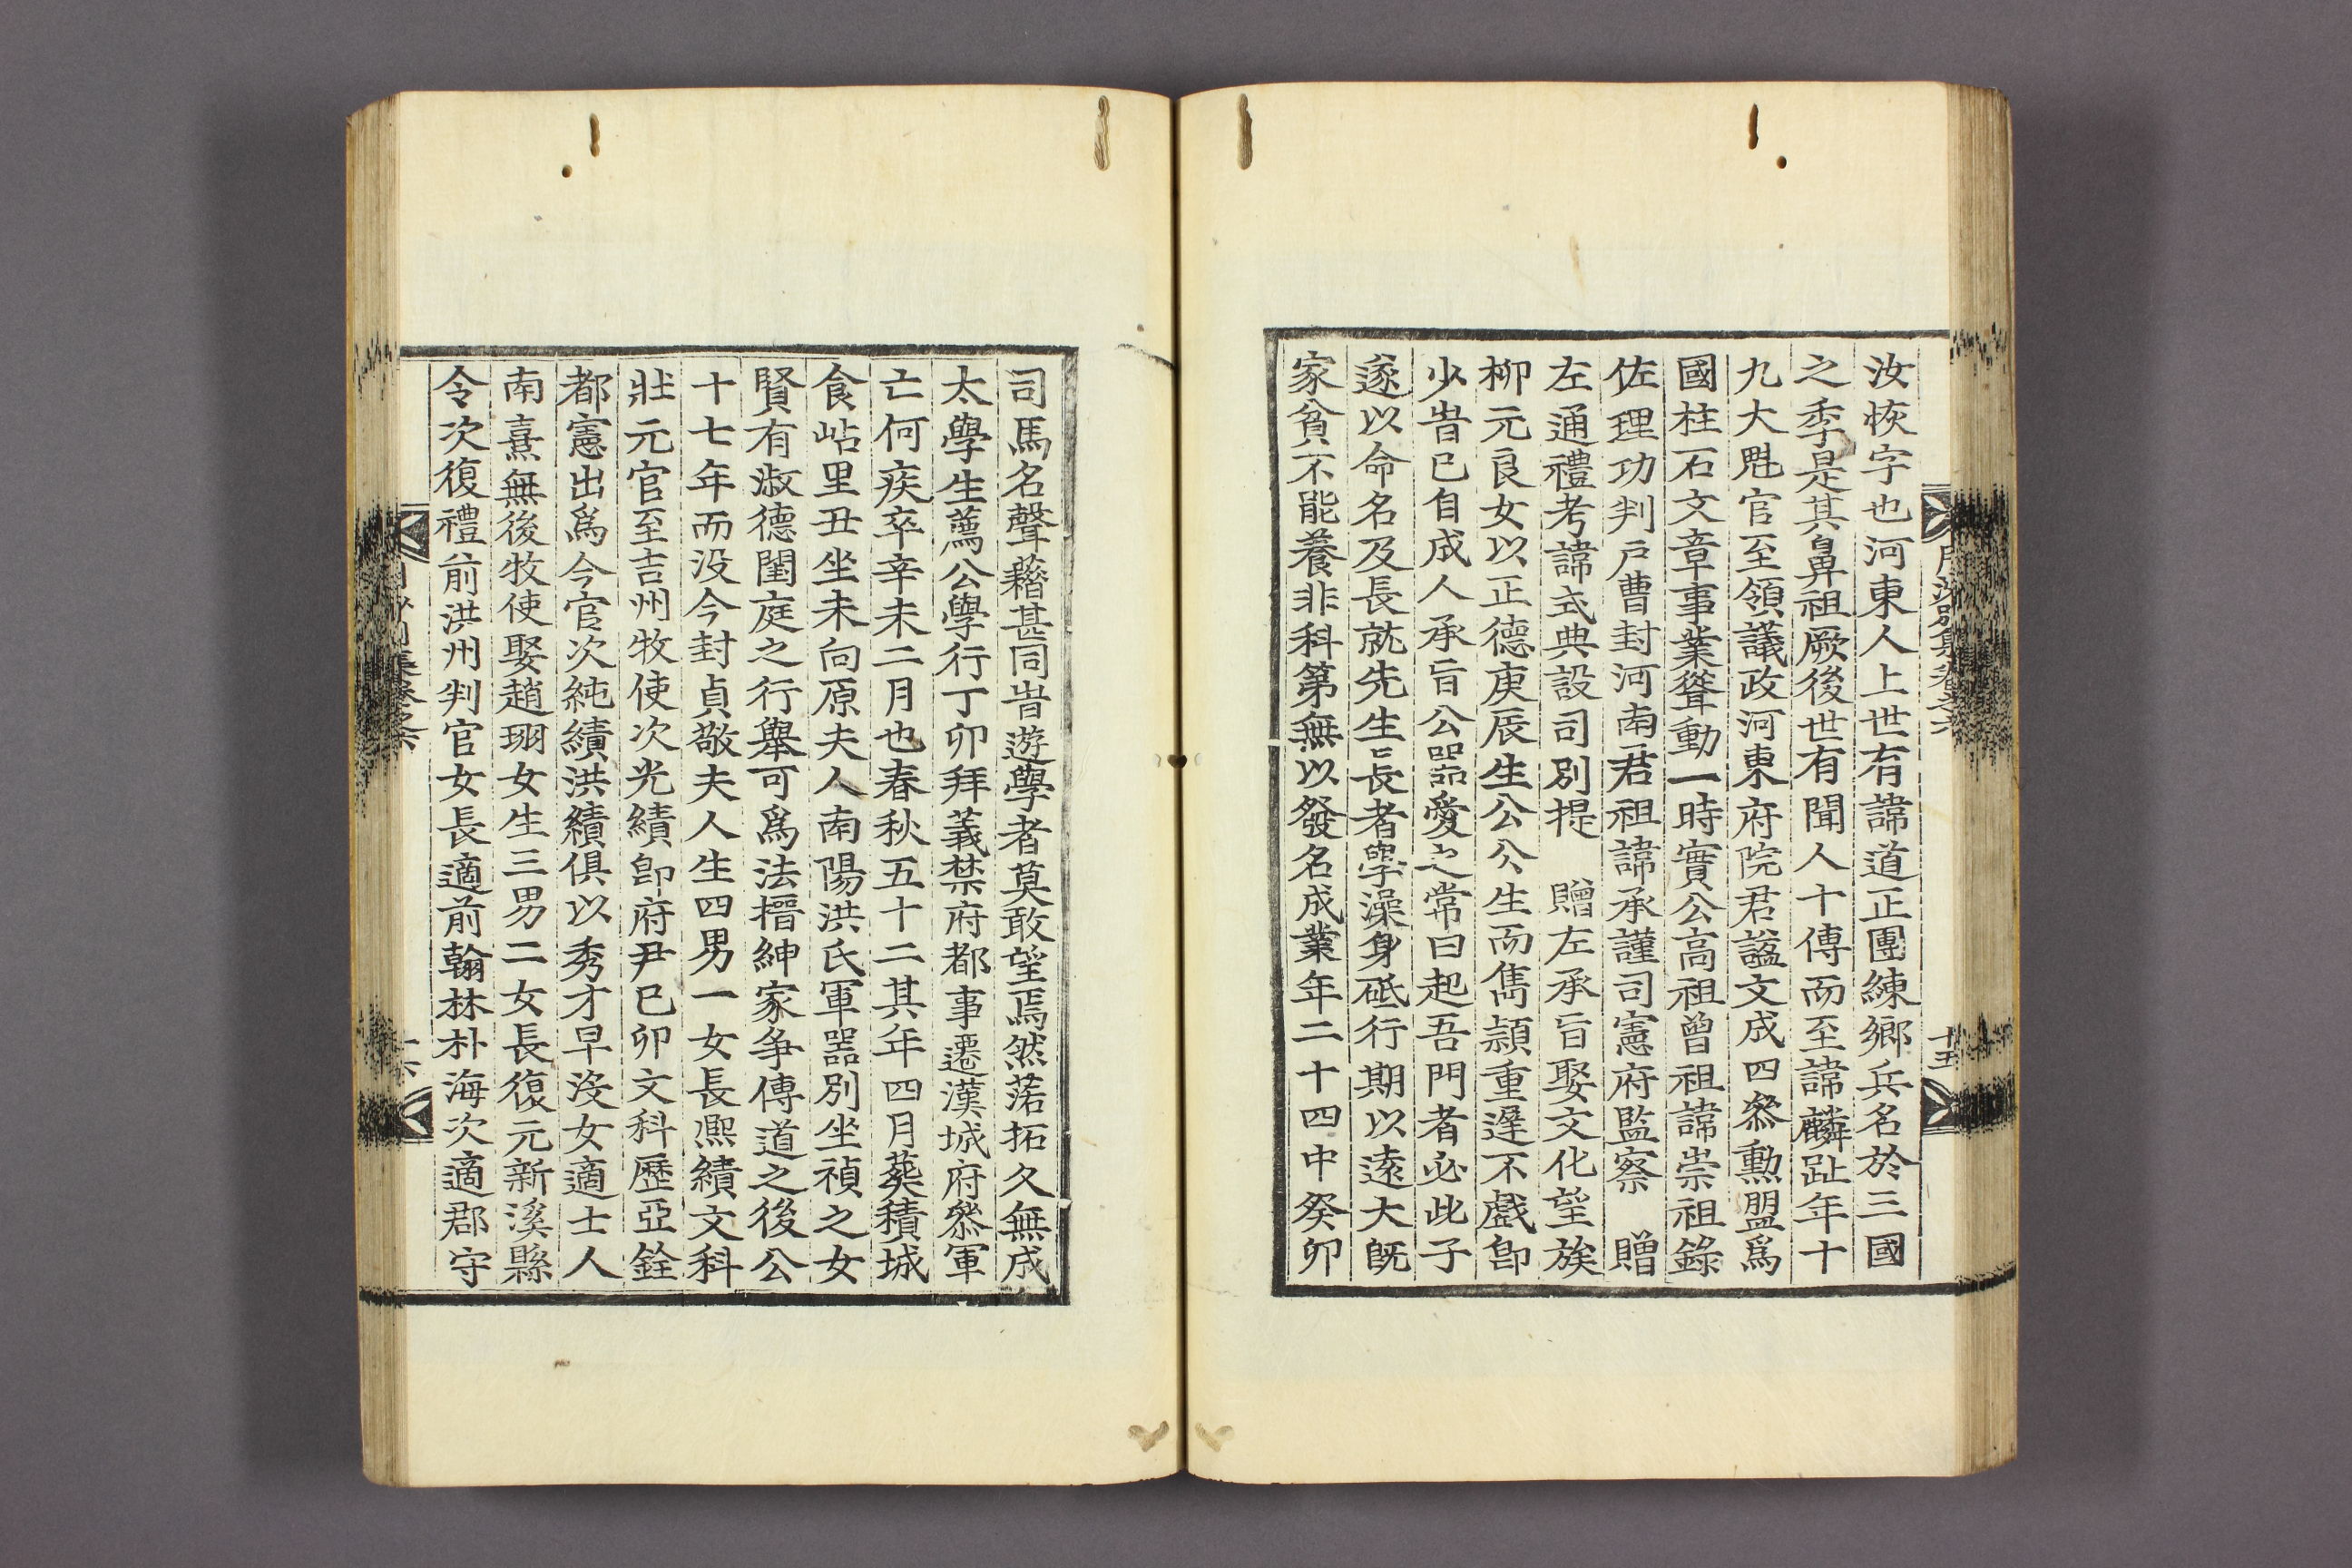 汝恢字也河東人上世有諱道正團練鄉兵名於三國
之季是其鼻祖厥後世有聞人十傳而至諱麟趾年十
九大魁官至領議政河東府院君謚文成四叅勳盟爲
國柱石文章事業聳動一時實公高祖曾祖諱崇祖錄
佐理功判戶曹封河南君祖諱承謹司憲府監察 贈
左通禮考諱式典設司別提 贈左承旨娶文化望族
柳元良女以正德庚辰生公公生而雋穎重遲不戱卽
少旹已自成人承旨公噐愛之常曰起吾門者必此子
遂以命名及長就先生長者學澡身砥行期以遠大旣
家貧不能養非科第無以發名成業年二十四中癸卯
十五
司馬名聲藉甚同旹遊學者莫敢望焉然落拓久無成
太學生薦公學行丁卯拜義禁府都事遷漢城府叅軍
亡何疾卒辛未二月也春秋五十二其年四月葬積城
食岾里丑坐未向原夫人南陽洪氏軍噐別坐禎之女
賢有淑德閨庭之行舉可爲法搢紳家争傳道之後公
十七年而没今封貞敬夫人生四男一女長熈績文科
壯元官至吉州牧使次光績卽府尹已卯文科歷亞銓
都憲出爲今官次純績洪績俱以秀才早沒女適士人
南熹無後牧使娶趙珝女生三男二女長復元新溪縣
令次復禮前洪州判官女長適前翰林朴海次適郡守